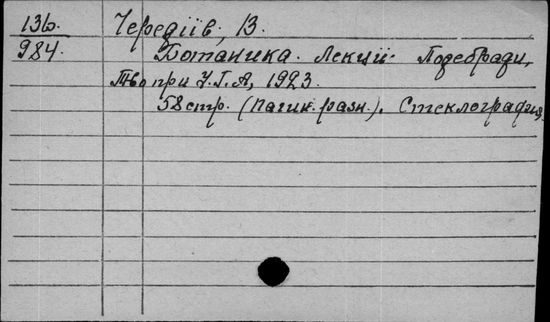 136. Чередіїв, В.
984. Ботаника. Лекції. Подебради,
Т-во при У.Г.А, 1923.
58 стр. (Пагин. разн.). Стеклография.